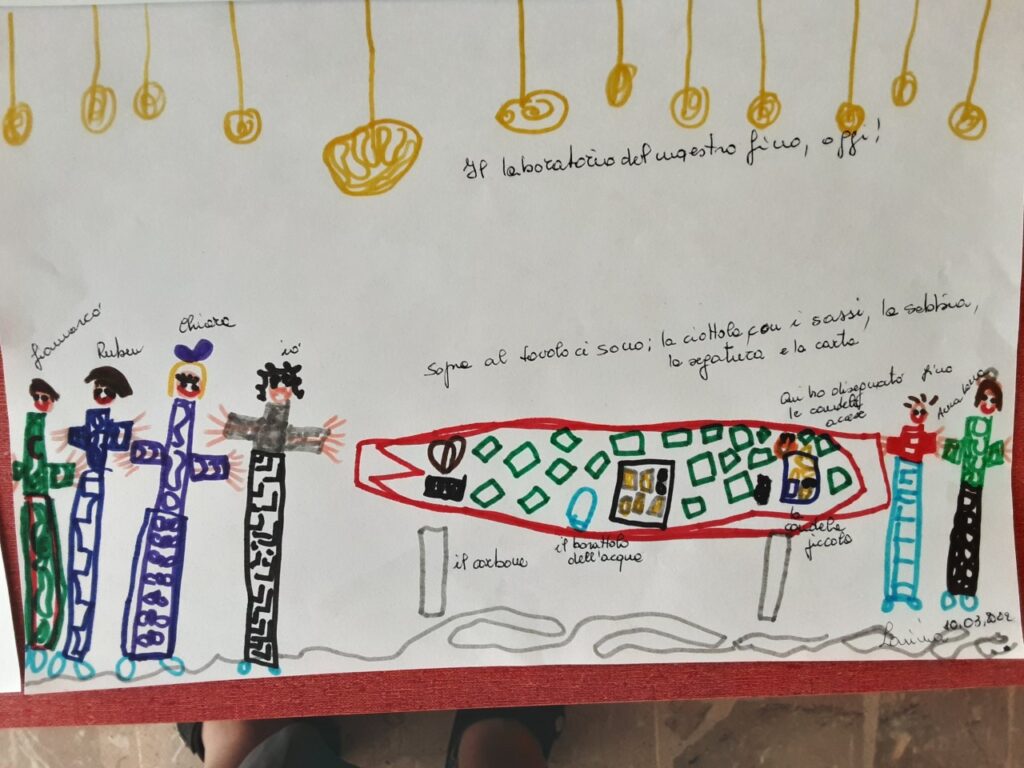 Il laboratorio del maestro Gino, oggi!
Gianmarco
Ruben
Chiara
io
Sopra al tavolo ci sono; la ciottola con i sassi, la sabbina,
la segatura e la carta
Qui ho disegnato
le candele
accese
Gino
Anna
il carbone
il barattolo
dell'acqua
la
candela
piccola
10.03.2022